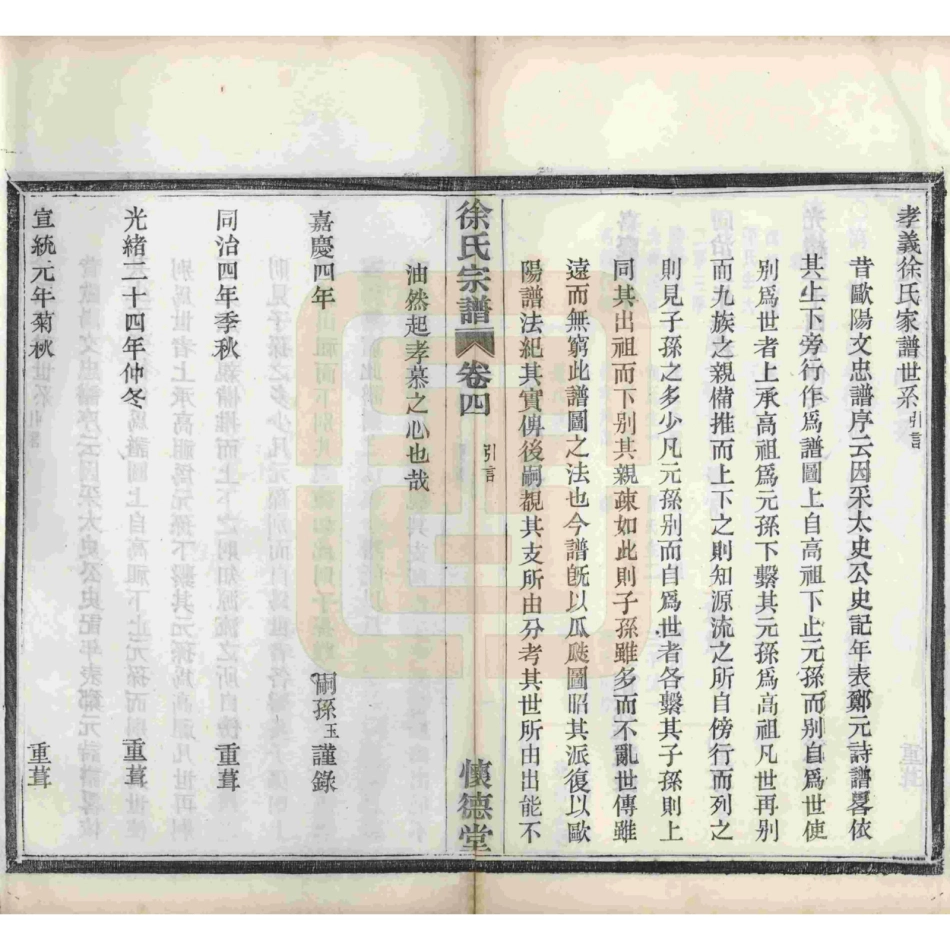 孝義徐氏家譜世系引言
昔歐陽文忠譜序云因采太史公史記年表鄭元詩譜畧依
其上下旁行作爲譜圖上自高祖下止元孫而别自爲世使
别爲世者上承高祖爲元孫下繫其元孫爲高祖凡世再别
而九族之親備推而上下之則知源流之所自傍行而列之
則見子孫之多少凡元孫别而自爲世者各繫其子孫則上
同其出祖而下别其親疎如此則子孫雖多而不亂世傳雖
遠而無窮此譜圖之法也今譜旣以瓜瓞圖昭其派復以歐
陽譜法紀其實俾後嗣覩其支所由分考其世所由出能不
徐氏宗譜 卷四 引言 懷德堂
油然起孝慕之心也哉
嘉慶四年 嗣孫玉謹錄
同治四年季秋 重葺
光緒二十四年仲冬 重葺
宣統元年菊秋 重葺